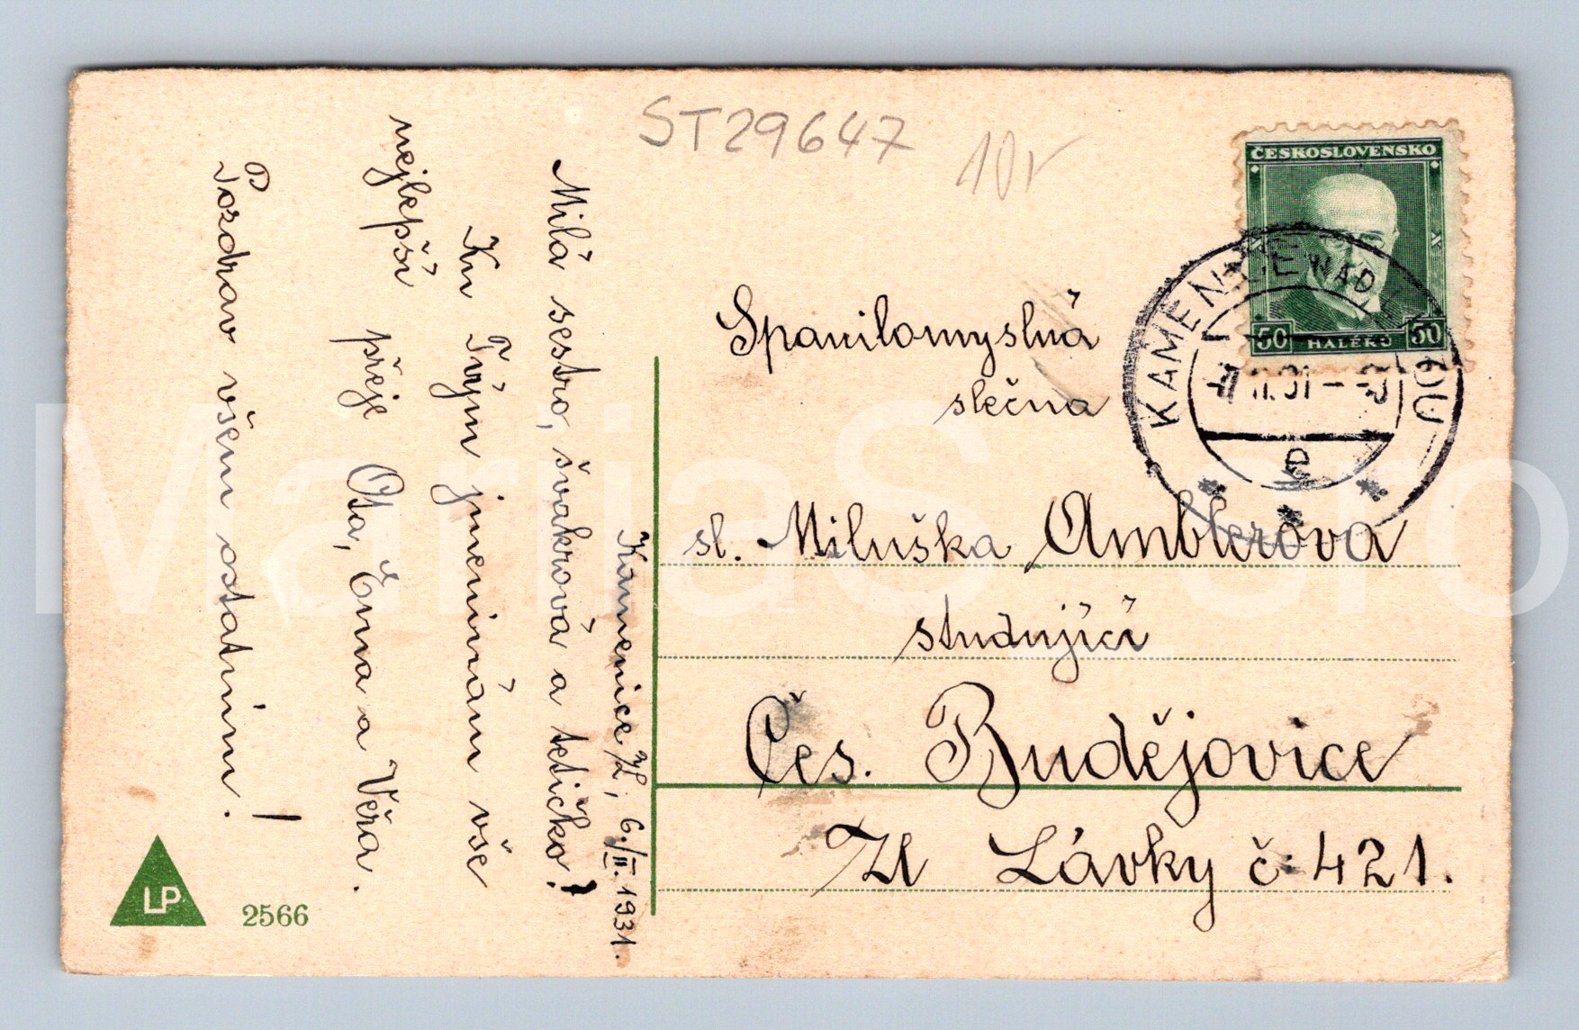 ST29647
10,-
ČESKOSLOVENSKO
50 HALÉŘŮ 50
KAMENICE NAD LIPOU
e
Kamenice /L, 6./II. 1931.
Milá sestro, švakrová a tetičko!
Ku Tvým jmeninám vše
nejlepší přeje Ota, Ema a Věra.
Pozdrav všem ostatním!
Spanilomyslná
slečna
sl. Miluška Amblerova
studující
Čes. Budějovice
U Lávky č. 421.
LP
2566